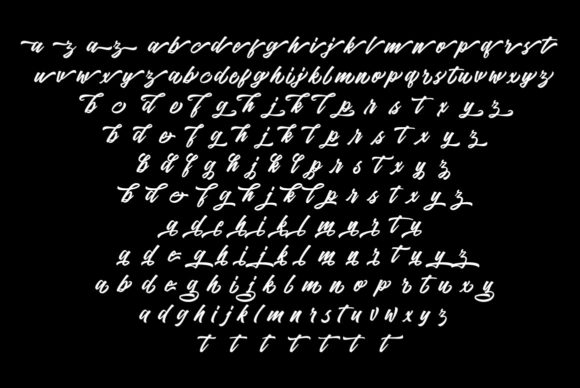 a z a z a b c d e f g h i j k l m n o p q r s t
u v w x y z a b c d e f g h i j k l m n o p q r s t u v w x y z
b c d e f g h j k l p r s t x y z
b d e f g h j k l p r s t x y z
b d f g h j k l p r s t x y z
b d e f g h j k l p r s t x y z
a d e h i k l m u r t y
a d e g h i j k l m u r t u y z
a b d e g h i j k l m n o p r t u x y
a d g h i j k l m n r s t u v w x y z
t t t t t t t